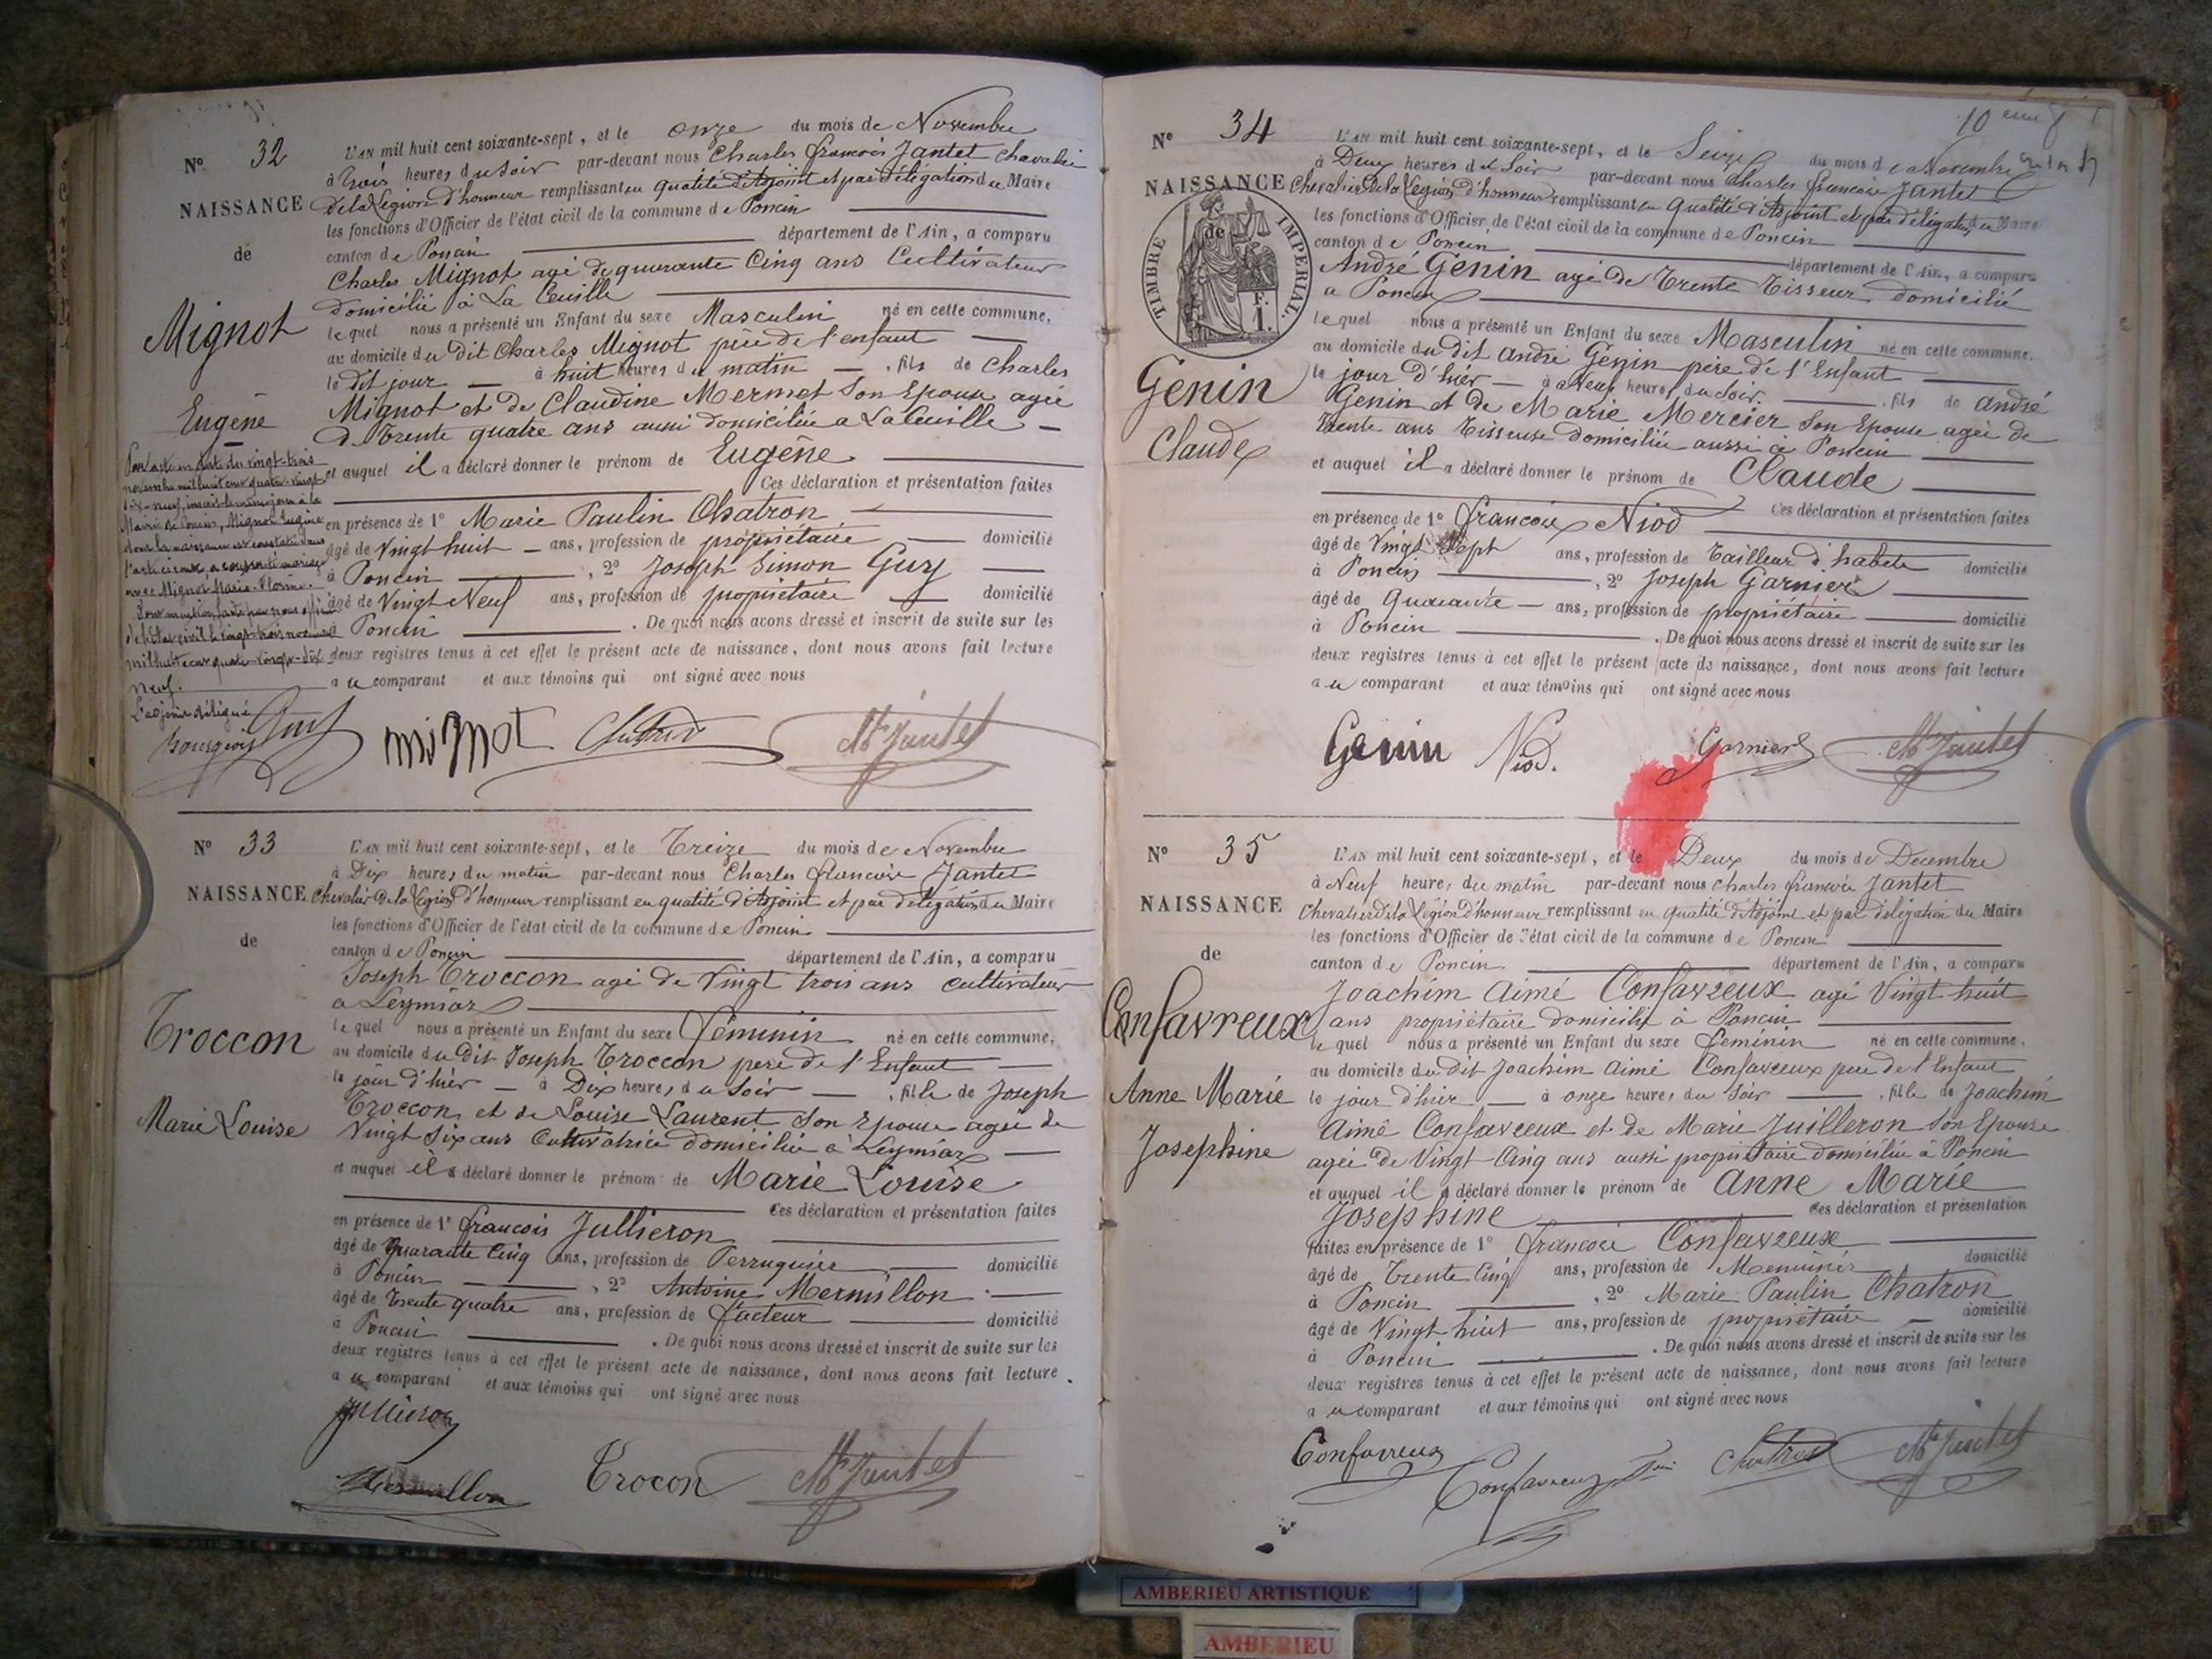 N° 32
NAISSANCE
de
Mignot
Eugène
L'AN mil huit cent soixante-sept, et le onze du mois de Novembre
à trois heures du soir par-devant nous Charles françois Jantet chevalier
de la Légion d'honneur remplissant en qualité d'Adjoint et par délégation du Maire
les fonctions d'Officier de l'état civil de la commune de Poncin
canton de Poncin département de l'Ain, a comparu
Charles Mignot agé de quarante Cinq ans Cultivateur
domicilié à La Cueille
lequel nous a présenté un Enfant du sexe Masculin né en cette commune,
au domicile du dit Charles Mignot père de l'enfant
le dit jour à huit heures du matin, fils de Charles
Mignot et de Claudine Mermet son Epouse agée
de trente quatre ans aussi domiciliée a La Cueille
et auquel il a déclaré donner le prénom de Eugêne
Ces déclaration et présentation faites
en présence de 1° Marie Paulin Chatron
âgé de Vingt huit ans, profession de propriétaire domicilié
à Poncin, 2° Joseph Simon Guy
âgé de Vingt Neuf ans, profession de propriétaire domicilié
à Poncin. De quoi nous avons dressé et inscrit de suite sur les
deux registres tenus à cet effet le présent acte de naissance, dont nous avons fait lecture
a u comparant et aux témoins qui ont signé avec nous
Par acte en date du vingt-trois
novembre mil huit cent quatre-vingt
dix-neuf, inscrit le même jour à la
Mairie de Poncin, Mignot Eugène
dont la naissance est constatée dans
l'acte ci-contre, a contracté mariage
avec Mignot Marie-
Pour mention faite par nous officier
de l'Etat civil le vingt-trois novembre
mil huit cent quatre-vingt-dix
neuf.
L'adjoint délégué
Bourgeois
Guy mignot Chatron Ch Jantet
N° 33
NAISSANCE
de
Troccon
Marie Louise
L'AN mil huit cent soixante-sept, et le Treize du mois de Novembre
à Dix heures du matin par-devant nous Charles françois Jantet
Chevalier de la Légion d'honneur remplissant en qualité d'Adjoint et par délégation du Maire
les fonctions d'Officier de l'état civil de la commune de Poncin
canton de Poncin département de l'Ain, a comparu
Joseph Troccon agé de Vingt trois ans cultivateur
a Leymiaz
lequel nous a présenté un Enfant du sexe féminin né en cette commune,
au domicile du dit Joseph Troccon père de l'Enfant
le jour d'hier à Dix heures du soir, fille de Joseph
Troccon et de Louise Laurent son Epouse agée de
Vingt six ans Cultivatrice domiciliée à Leymiaz
et auquel il a déclaré donner le prénom de Marie Louise
Ces déclaration et présentation faites
en présence de 1° françois Jullieron
âgé de quarante Cinq ans, profession de Perruquier domicilié
à Poncin, 2° Antoine Mermillon
âgé de trente quatre ans, profession de facteur domicilié
à Poncin. De quoi nous avons dressé et inscrit de suite sur les
deux registres tenus à cet effet le présent acte de naissance, dont nous avons fait lecture
a u comparant et aux témoins qui ont signé avec nous
Jullieron
Mermillon Trocon Ch Jantet
N° 34
NAISSANCE
TIMBRE IMPERIAL
de
Genin
Claude
L'AN mil huit cent soixante-sept, et le Seize du mois de Novembre
à Deux heures du Soir par-devant nous Charles françois Jantet
Chevalier de la Légion d'honneur remplissant en qualité d'Adjoint et par délégation du Maire
les fonctions d'Officier de l'état civil de la commune de Poncin
canton de Poncin département de l'Ain, a comparu
André Genin agé de trente Tisseur domicilié
a Poncin
lequel nous a présenté un Enfant du sexe Masculin né en cette commune.
au domicile du dit André Genin père de l'Enfant
le jour d'hier à heures du Soir, fils de André
Genin et de Marie Mercier son Epouse agée de
trente ans Tisseuse domiciliée aussi à Poncin
et auquel il a déclaré donner le prénom de Claude
Ces déclaration et présentation faites
en présence de 1° françois Niod
âgé de Vingt Sept ans, profession de Tailleur d'habits domicilié
à Poncin, 2° Joseph Garnier
âgé de Quarante ans, profession de propriétaire domicilié
à Poncin. De quoi nous avons dressé et inscrit de suite sur les
deux registres tenus à cet effet le présent acte de naissance, dont nous avons fait lecture
a u comparant et aux témoins qui ont signé avec nous
Genin Niod. Garnier Ch Jantet
N° 35
NAISSANCE
de
Confavreux
Anne Marie
Josephine
L'AN mil huit cent soixante-sept, et le Deux du mois de Decembre
à Neuf heures du matin par-devant nous Charles françois Jantet
Chevalier de la Légion d'honneur remplissant en qualité d'Adjoint et par délégation du Maire
les fonctions d'Officier de l'état civil de la commune de Poncin
canton de Poncin département de l'Ain, a comparu
Joachim Aimé Confavreux agé Vingt huit
ans propriétaire domicilié à Poncin
lequel nous a présenté un Enfant du sexe féminin né en cette commune.
au domicile du dit Joachim Aimé Confavreux père de l'Enfant
le jour d'hier à onze heures du Soir, fille de Joachim
Aimé Confavreux et de Marie Juilleron son Epouse
agée de Vingt Cinq ans aussi propriétaire domiciliée à Poncin
et auquel il a déclaré donner le prénom de Anne Marie
Josephine Ces déclaration et présentation
faites en présence de 1° françois Confavreux
âgé de Trente Cinq ans, profession de Menuisier domicilié
à Poncin, 2° Marie Paulin Chatron
âgé de Vingt huit ans, profession de propriétaire domicilié
à Poncin. De quoi nous avons dressé et inscrit de suite sur les
deux registres tenus à cet effet le présent acte de naissance, dont nous avons fait lecture
a u comparant et aux témoins qui ont signé avec nous
Confavreux Confavreux Chatron Ch Jantet
AMBERIEU ARTISTIQUE
AMBERIEU